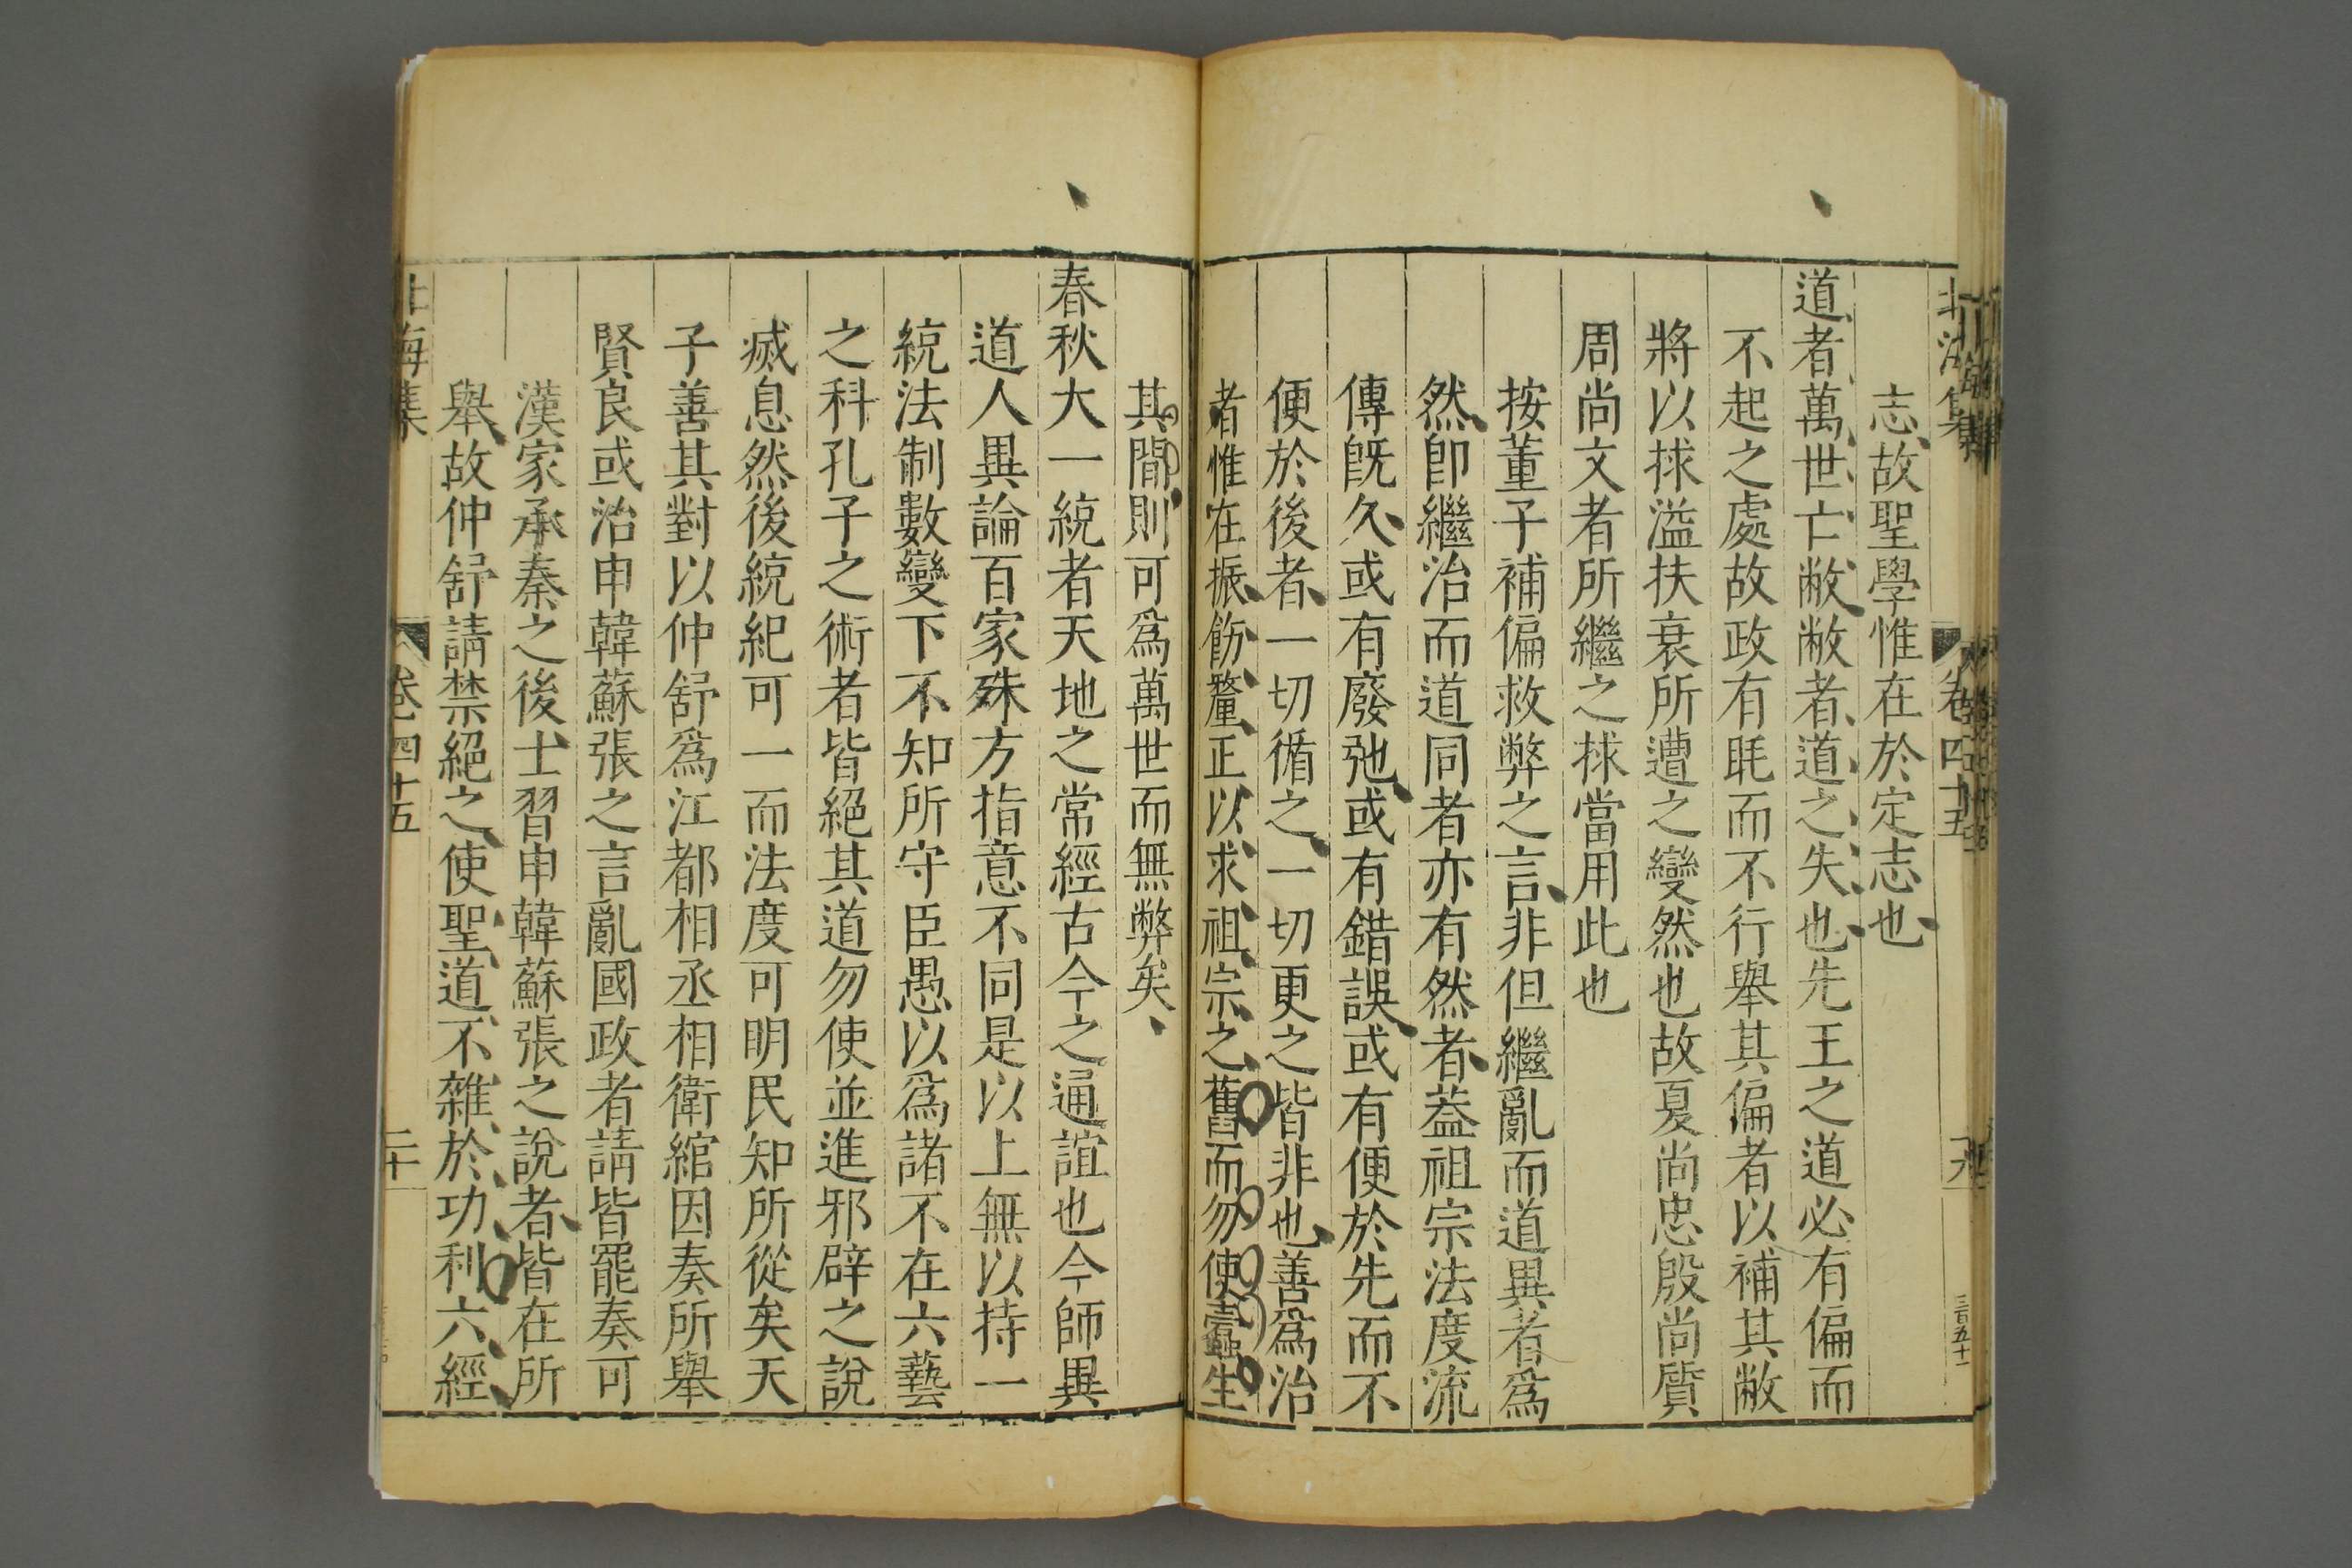 北海集
卷四十五
志故聖學惟在於定志也
道者萬世亡敝敝者道之失也先王之道必有偏而
不起之處故政有眊而不行舉其偏者以補其敝
將以捄溢扶衰所遭之變然也故夏尚忠殷尚質
周尚文者所繼之捄當用此也
按董子補偏救弊之言非但繼亂而道異者爲
然卽繼治而道同者亦有然者葢祖宗法度流
傳旣久或有廢弛或有錯誤或有便於先而不
便於後者一切循之一切更之皆非也善爲治
者惟在振飭釐正以求祖宗之舊而勿使蠹生
其間則可爲萬世而無弊矣
春秋大一統者天地之常經古今之通誼也今師異
道人異論百家殊方指意不同是以上無以持一
統法制數變下不知所守臣愚以爲諸不在六藝
之科孔子之術者皆絕其道勿使並進邪辟之說
滅息然後統紀可一而法度可明民知所從矣天
子善其對以仲舒爲江都相丞相衛綰因奏所舉
賢良或治申韓蘇張之言亂國政者請皆罷奏可
漢家承秦之後士習申韓蘇張之說者皆在所
舉故仲舒請禁絕之使聖道不雜於功利六經
北海集
卷四十五
二十